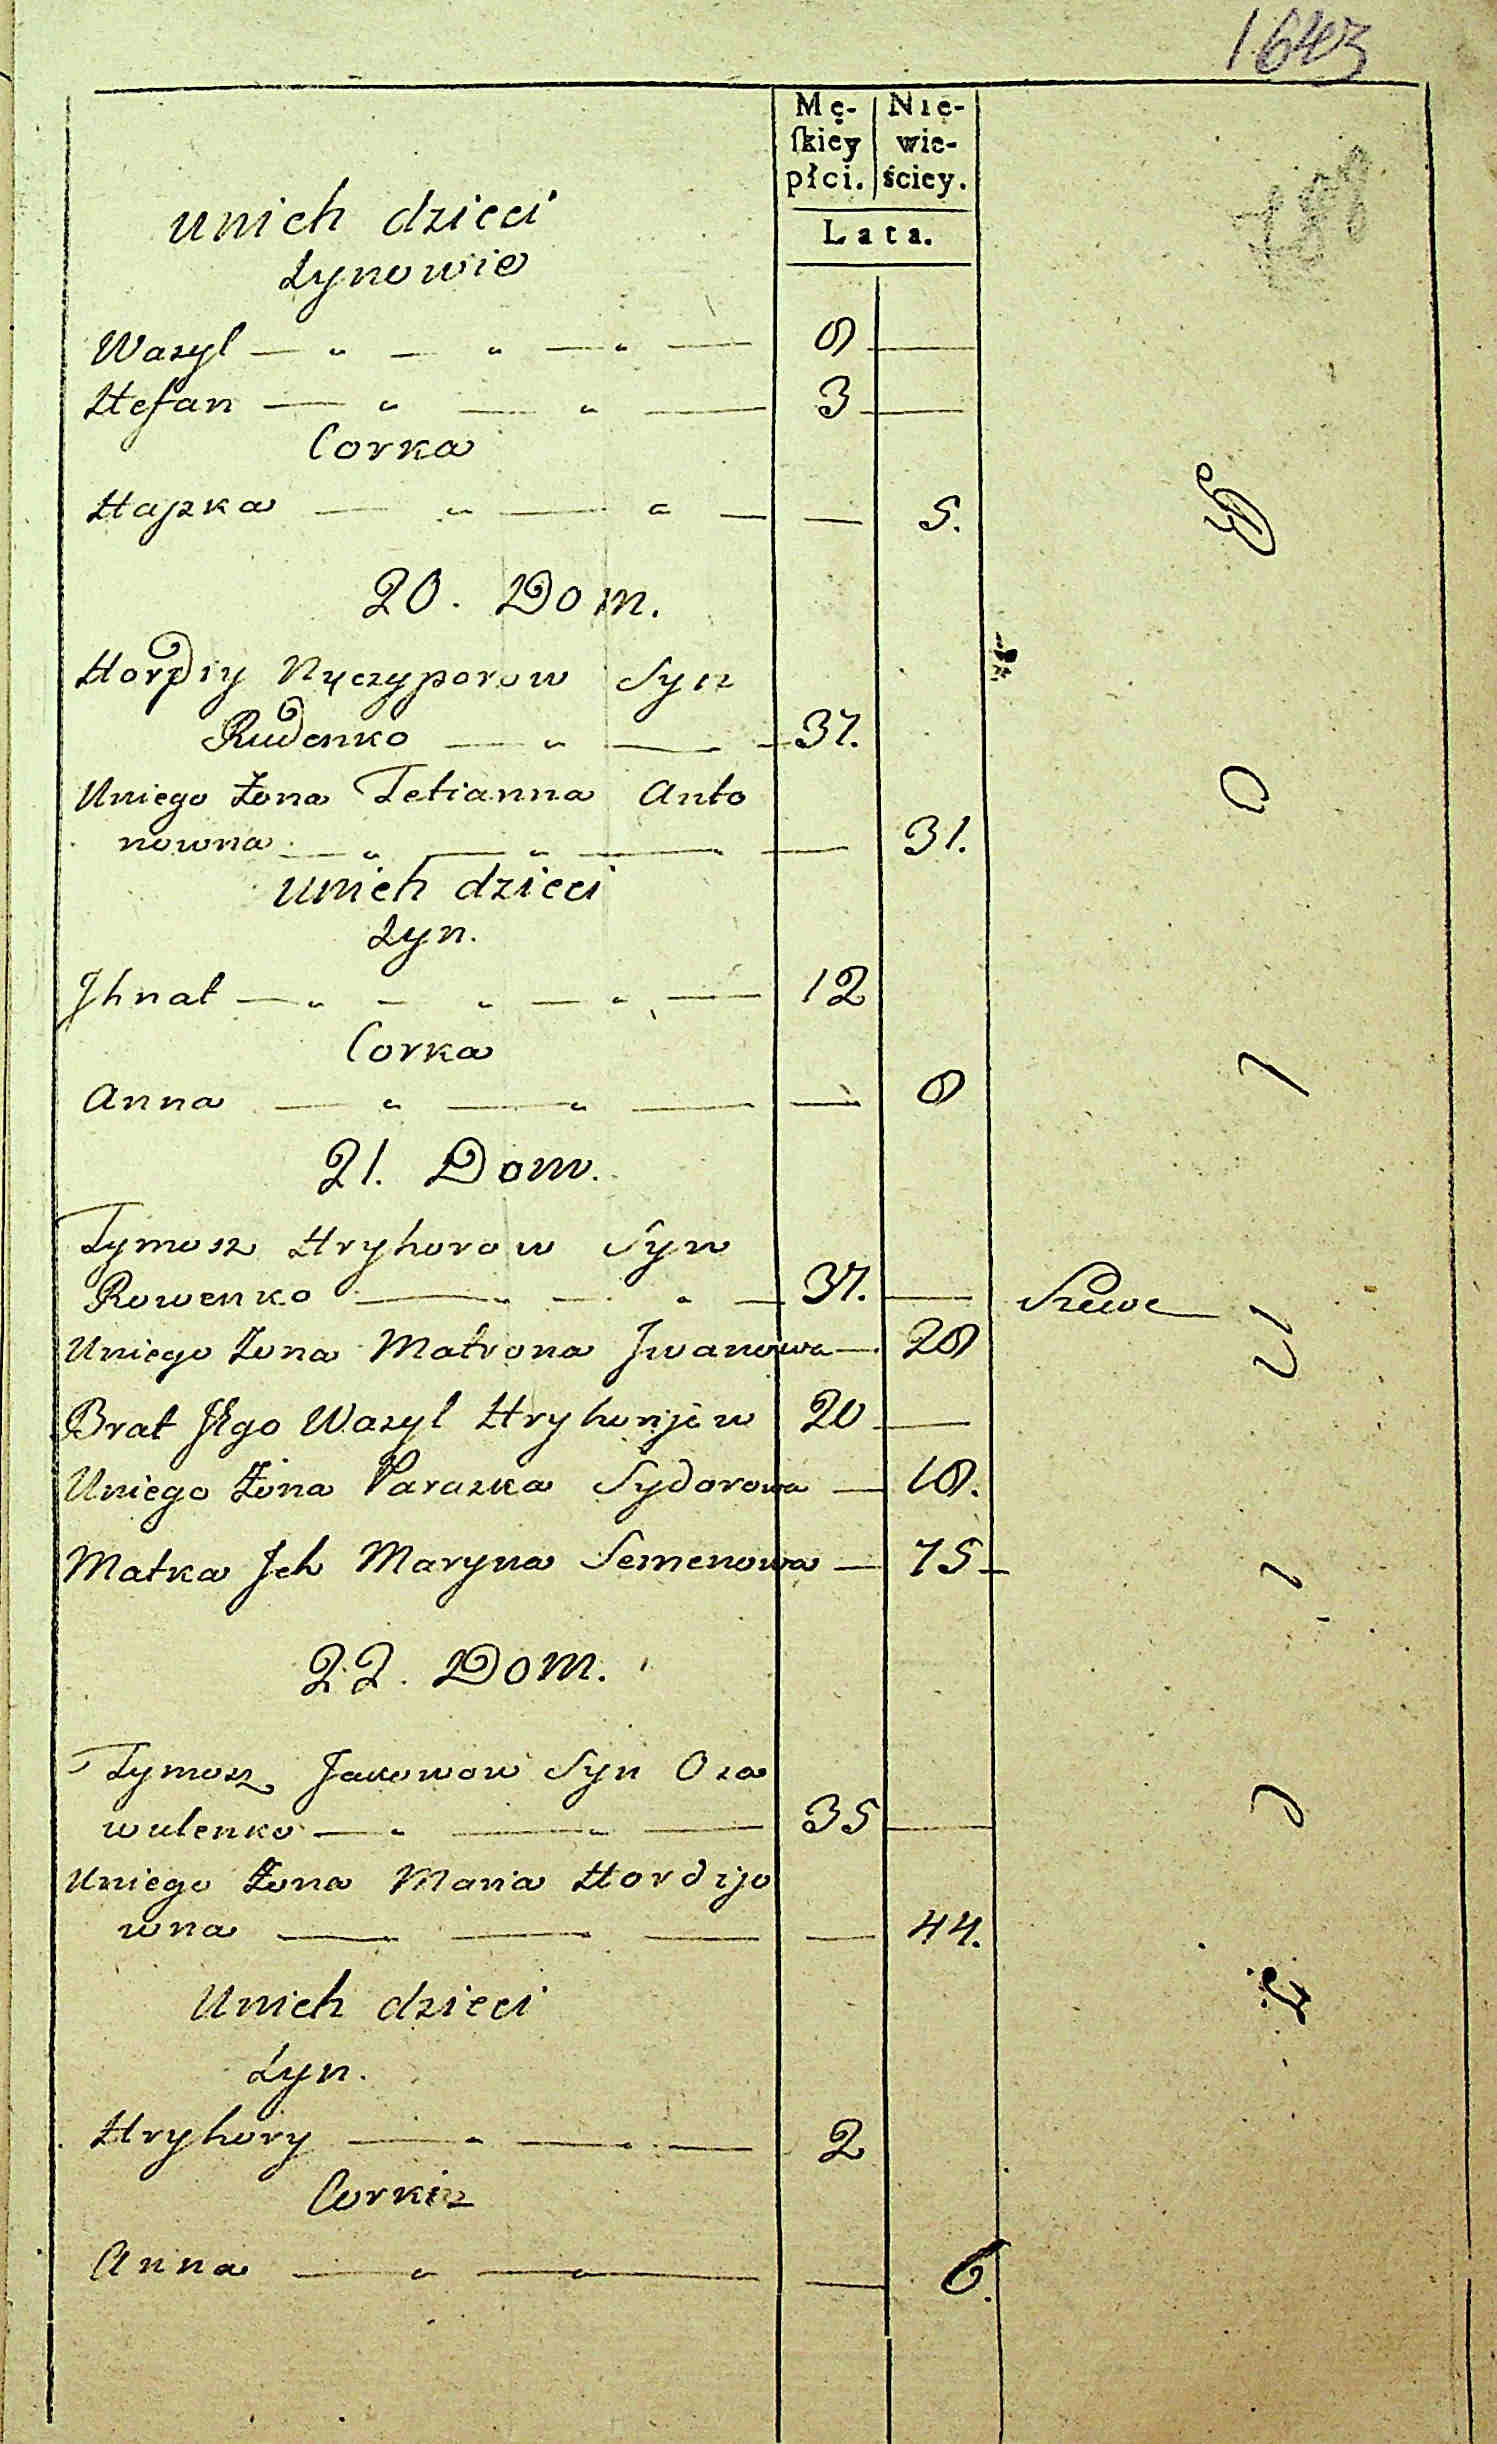 Mę- Nie-
ſkiey wie-
płci. ściey.
Lata.
Unich dzieci
Synowie
Wasyl — „ — „ — „ — 8 —
Stefan — „ — „ — 3 —
Corka
Hapka — „ — „ — — 5.
20. Dom.
Hordiy Nyczyporow Syn
Rudenko — „ — — 37.
Uniego Żona Tetianna Anto
nowna — „ — „ — — 31.
Unich dzieci
Syn.
Jhnat — „ — „ — „ — 12
Corka
Anna — „ — „ — — 8
21. Dom.
Tymosz Hryhorow Syn
Rowenko — „ — „ — 37. — Szewc
Uniego Żona Matrona Jwanowa — 28
Brat Jego Wasyl Hryhorjow 20 —
Uniego Żona Paraska Sydorowa — 18.
Matka Jch Maryna Semenowa — 75 —
22. Dom.
Tymosz Jakowow Syn Osa
wulenko — „ — „ — 35 —
Uniego Żona Maria Hordijo
wna — — — — 44.
Unich dzieci
Syn.
Hryhory — „ — „ — 2
Corka
Anna — „ — „ — — 6.